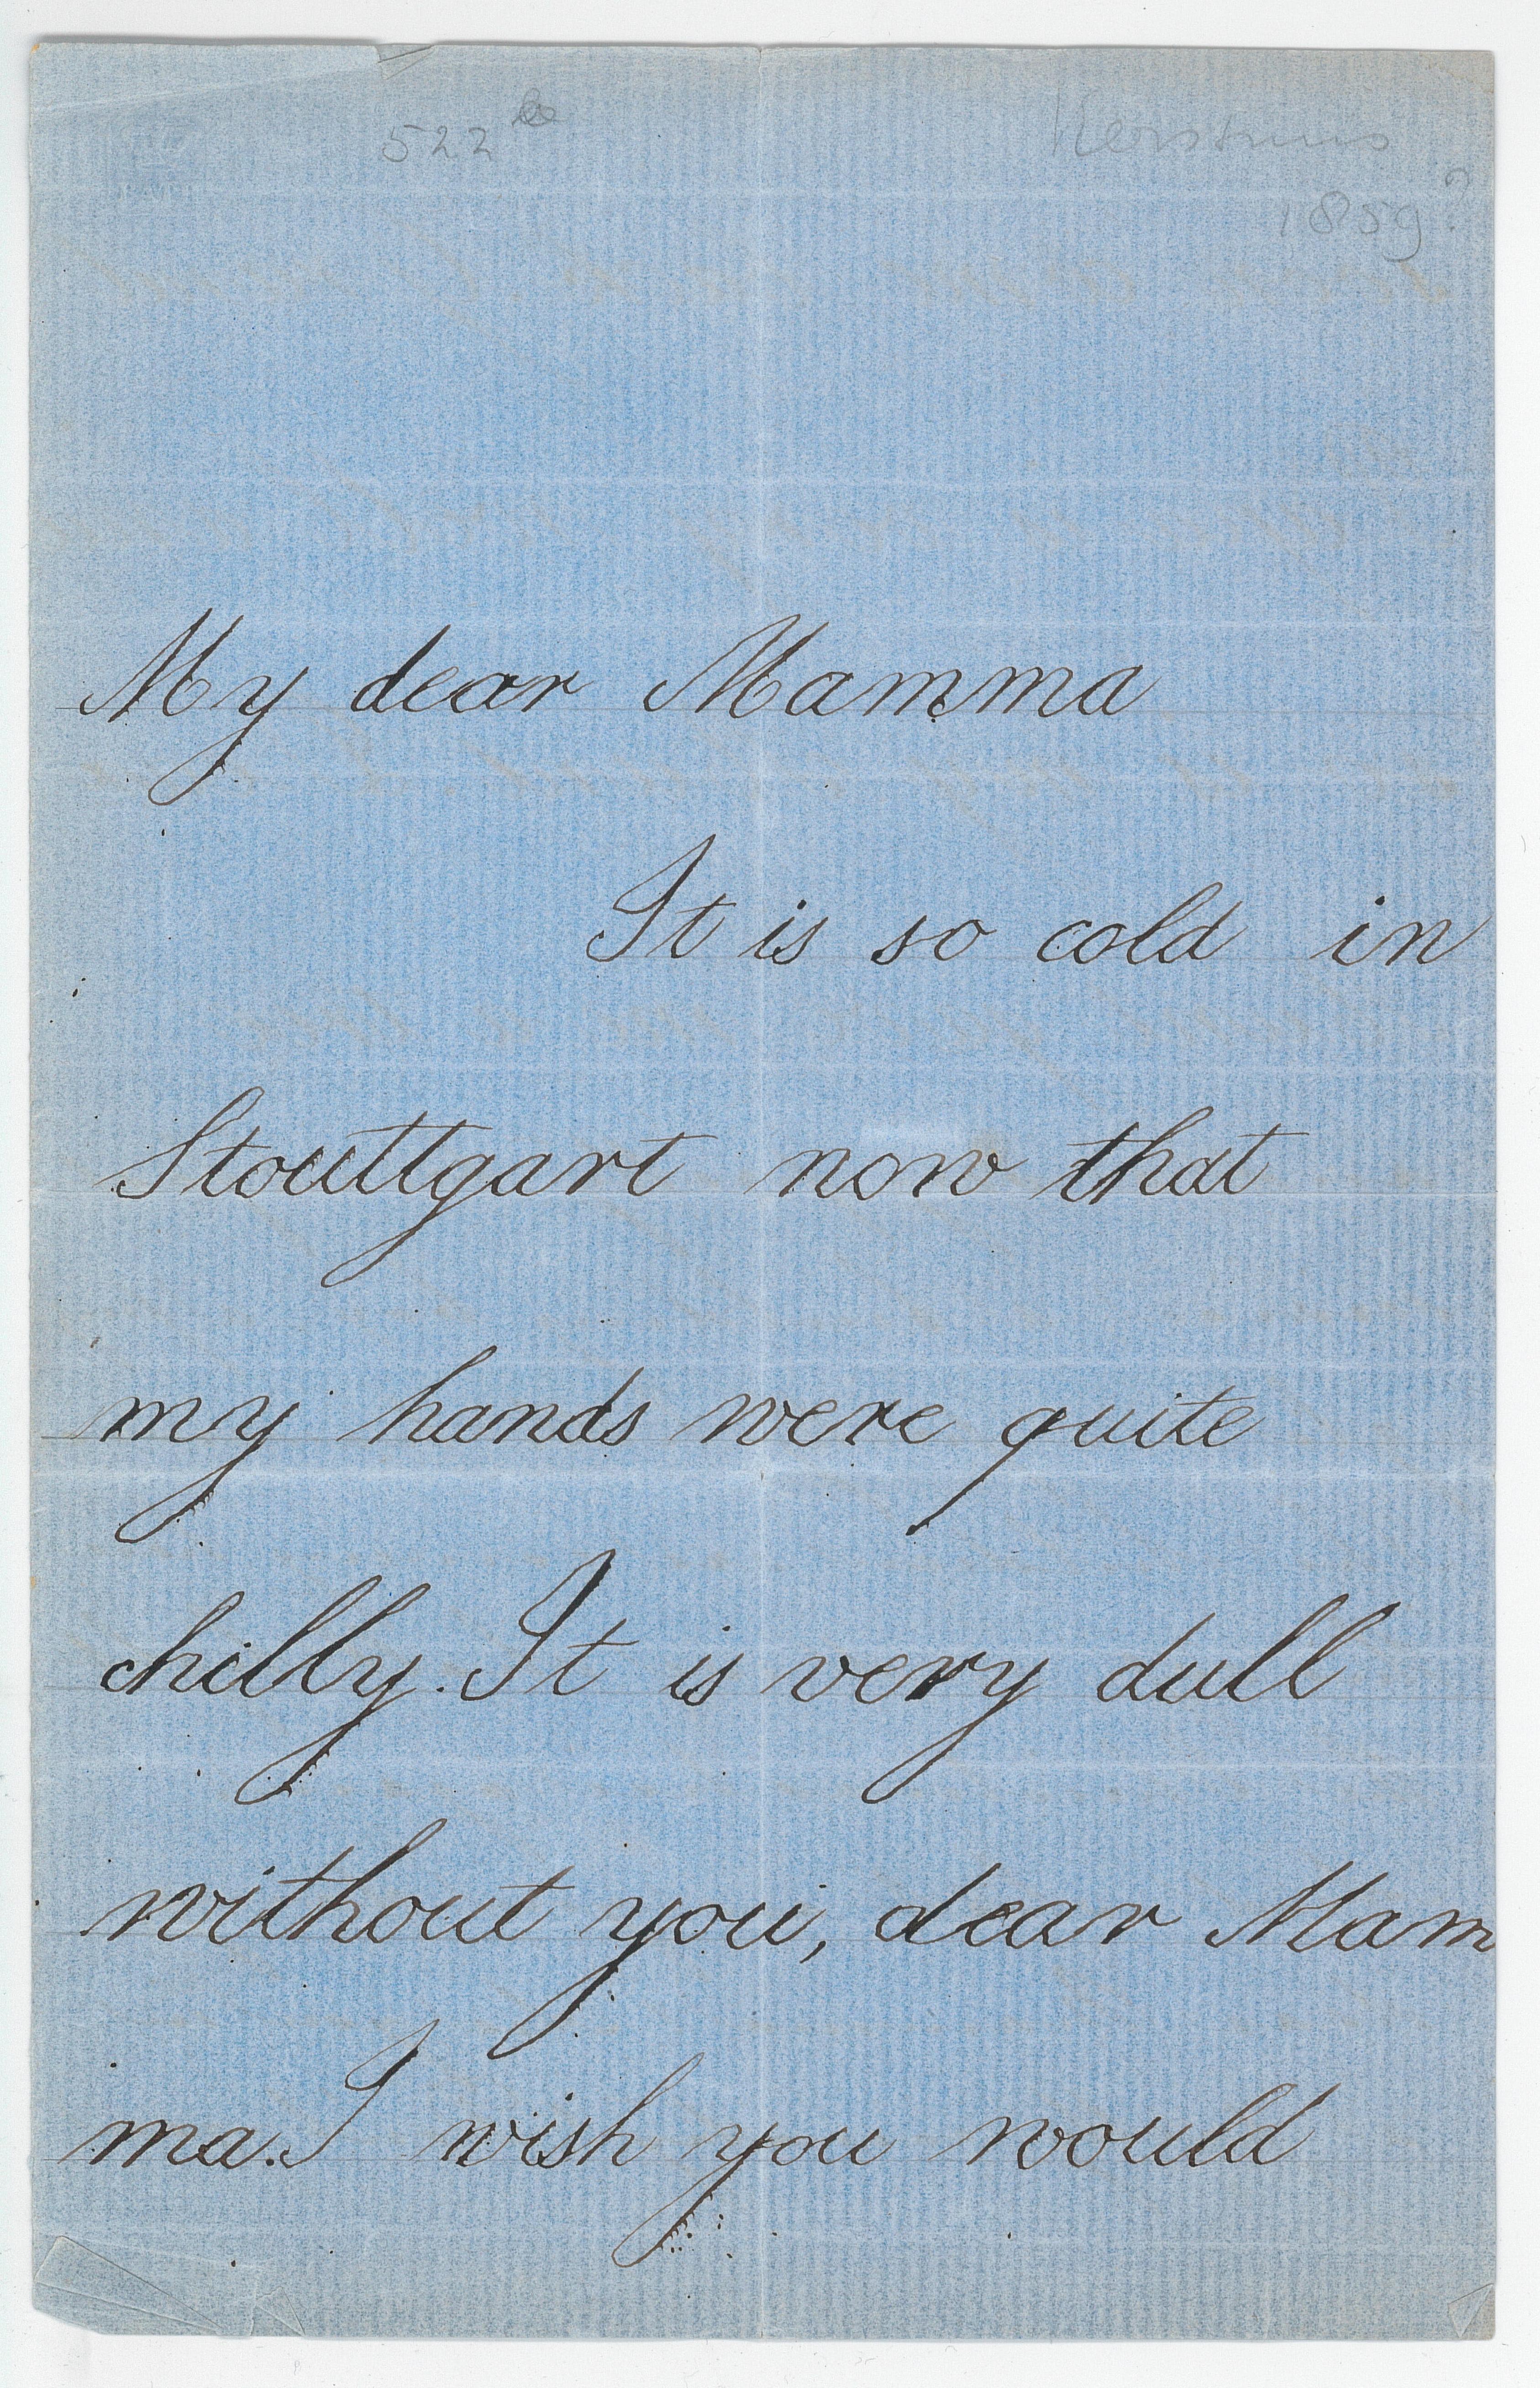 522
Kerstmis
1859?
My dear Mamma
It is so cold in
Stouttgart now that
my hands were quite
chilly. It is very dull
without you, dear Mam
ma. I wish you would